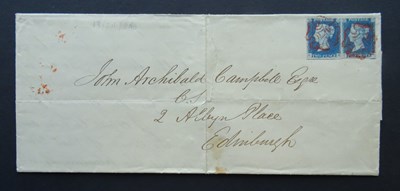 John Archibald Campbell Esqre
C.S.
2 Albyn Place
Edinburgh